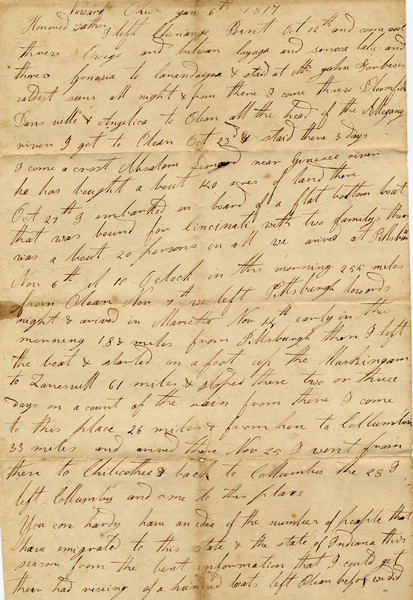 Newark Ohio Jan 6th 1817
Honored Father
I left Chenango Point Oct 12th and come out
threw Owego and between cayuga and seneca lake and
threw Genava to Canandaigua & staid at Mr John
oaldest suns all night & from there I come threw Bloomfield
Dansvelle & Angelica to Olean all the head of the Allegany
river I got to Olean Oct 23d & staid there 3 days
I come a crost Absalom near Genesee river
he has bought a bout 120 acres of land there
Oct 27th I embarked on board of a flat bottom boat
that was bound for Cincinati with two familys there
was a bout 20 persons in all we arived at Pittsburg
Nov 6th at 10 Oclock in the morning 255 miles
from Olean Nov 7th we left Pittsburgh towards
night & arived in Marietta Nov 14th early in the
morning 188 miles from Pittsburgh then I left
the boat & started on a foot up the Muskingum
to Zanesvill 61 miles & stoped there two or three
days on a count of the rain from there I come
to this place 26 miles & from here to Collumbus
33 miles and arived there Nov 25 I went from
there to Chilicothee & back to Collumbus the 28 I
left Collumbus and come to this place
You can hardy have an idea of the number of people that
have emigrated to this state & the state of Indiana this
season from the best information that I could get
there had riseing of a hundred boats left Olean before we did